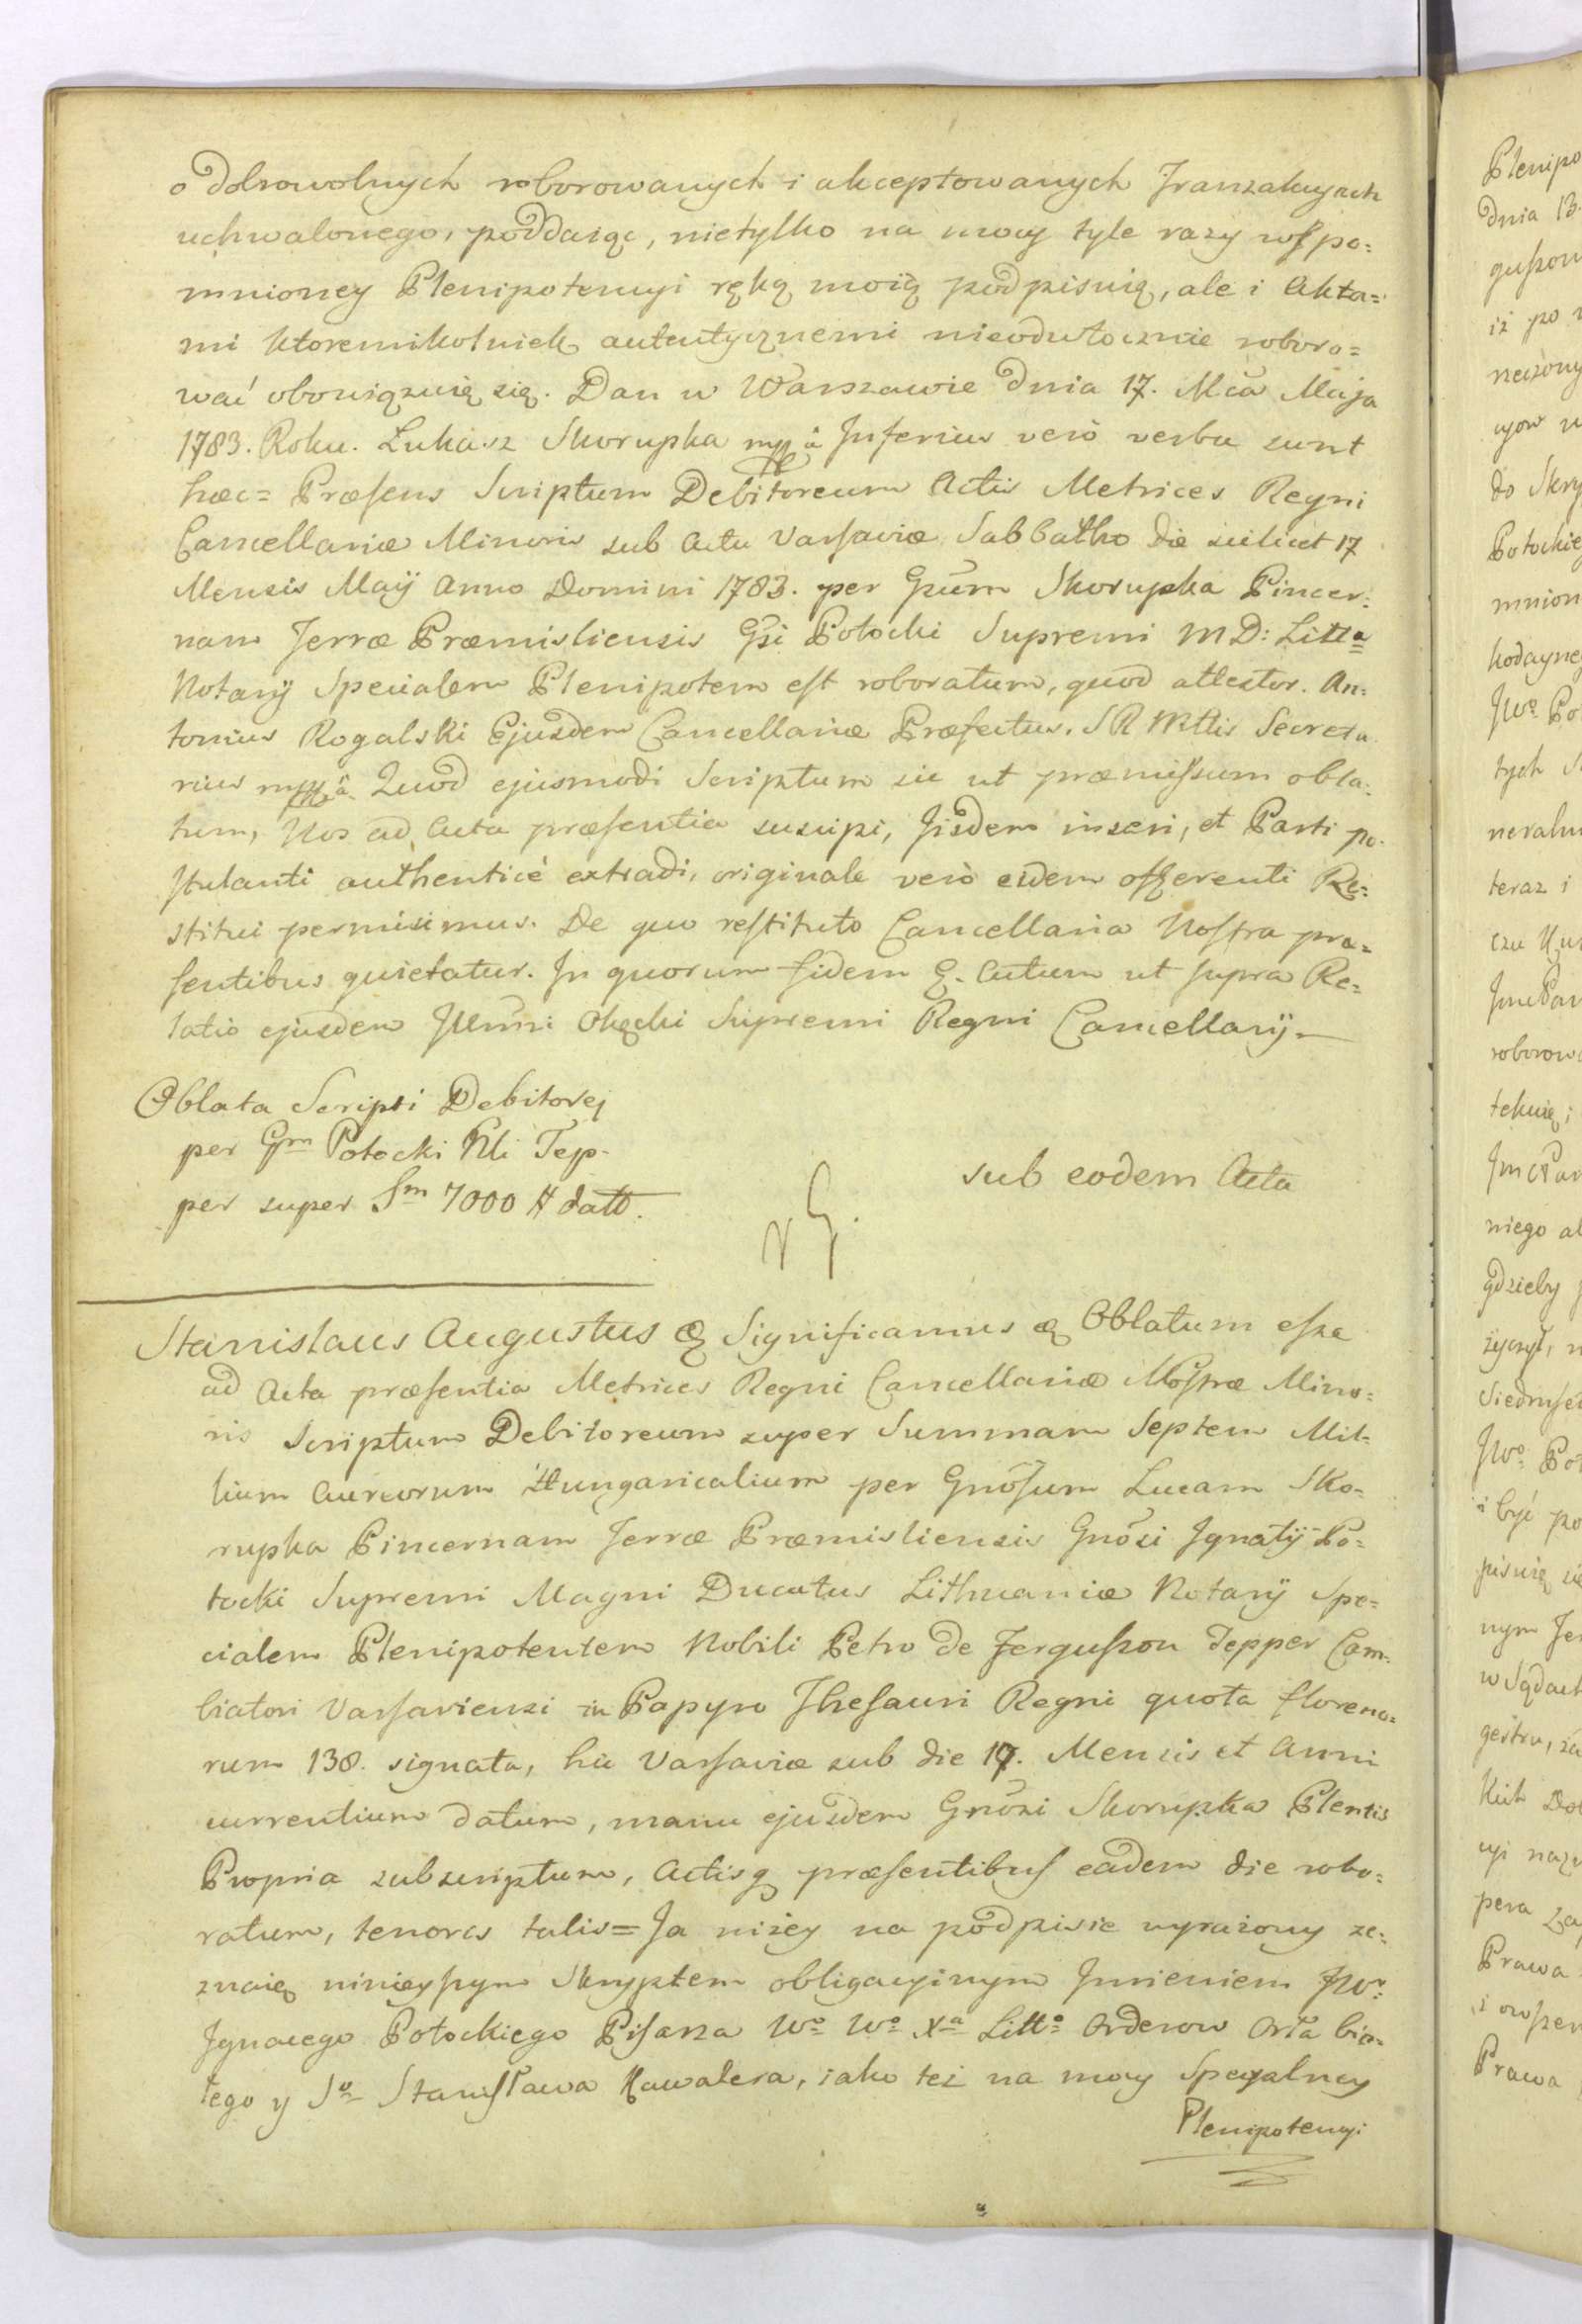 o dobrowolnych roborowanych i akceptowanych Tranzakcyach
uchwalonego, poddaiąc, nietylko na mocy tyle razy wspo=
mnioney Plenipotencyi ręką moią podpisuię, ale i Akta=
mi ktoremikolwiek autentycznemi nieodwłocznie roboro=
wać obowiązuię się. Dan w Warszawie Dnia 17. Mca Maja
1783. Roku. Lukasz Skorupka mpp â Inferius verò verba sunt
haec= Præsens Scriptum Debitoreum Actis Metrices Regni
Cancellariæ Minoris sub Actu Varsaviæ Sabbatho die scilicet 17
Mensis Maÿ Anno Domini 1783. per Gsum Skorupka Pincer=
nam Terræ Præmisliensis Gsi Potocki Supremi M D: Litta
Notarÿ Specialem Plenipotem est roboratum, quod attestor. An=
tonius Rogalski Ejusdem Cancellariæ Præfectus. S R Mttis Secreta
rius mpp â. Quod ejusmodi Scriptum sic ut præmissum obla=
tum, Nos ad Acta præsentia suscipi, Iisdem inseri, et Parti po=
stulanti authenticè extradi, originale verò eidem offerenti Re=
stitui permisimus. De quo restituto Cancellaria Nostra præ=
sentibus quietatur. In quorum fidem &. Actum ut supra Re=
latio ejusdem Illmi Okęcki Supremi Regni Cancellarÿ.
Oblata Scripti Debitorej
per Gm Potocki Nli Tep-
per super Sm 7000 # datt.
sub eodem Actu
Stanislaus Augustus & Significamus & Oblatum esse
ad Acta præsentia Metrices Regni Cancellariæ Nostræ Mino=
ris Scriptum Debitoreum super Summam Septem Mil=
lium Aureorum Hungaricalium per Gnosum Lucam Sko=
rupka Pincernam Terræ Præmisliensis Gnosi Ignatÿ Po=
tocki Supremi Magni Ducatus Lithuaniæ Notarÿ Spe=
cialem Plenipotentem Nobili Petro de Fergusson Tepper Cam=
biatori Varsaviensi in Papyro Thesauri Regni quota floreno=
rum 138. signata, hic Varsaviæ sub die 17. Mensis et Anni
currentium datum, manu ejusdem Gnosi Skorupka Plentis
Propria subscriptum, Actisq præsentibus eadem die robo=
ratum, tenoris talis= Ja niżey na podpisie wyrażony ze=
znaię ninieyszym Skryptem obligacyinym Imieniem JWo
Ignacego Potockiego Pisarza Wo Wo Xa Litto Orderow Orła bia=
łego y So Stanisława Kawalera, iako też na mocy Specyalney
Plenipotencyi
Plenipo
dnia 13.
gusson
iż po
do Skry
Potockie
mnion
kodayne
JWo Po
tych
teraz i
roborow
niego
gdzieby
życzył,
JWo Po
i być po
pisuię
nym
w Sądach
Prawa
Prawa